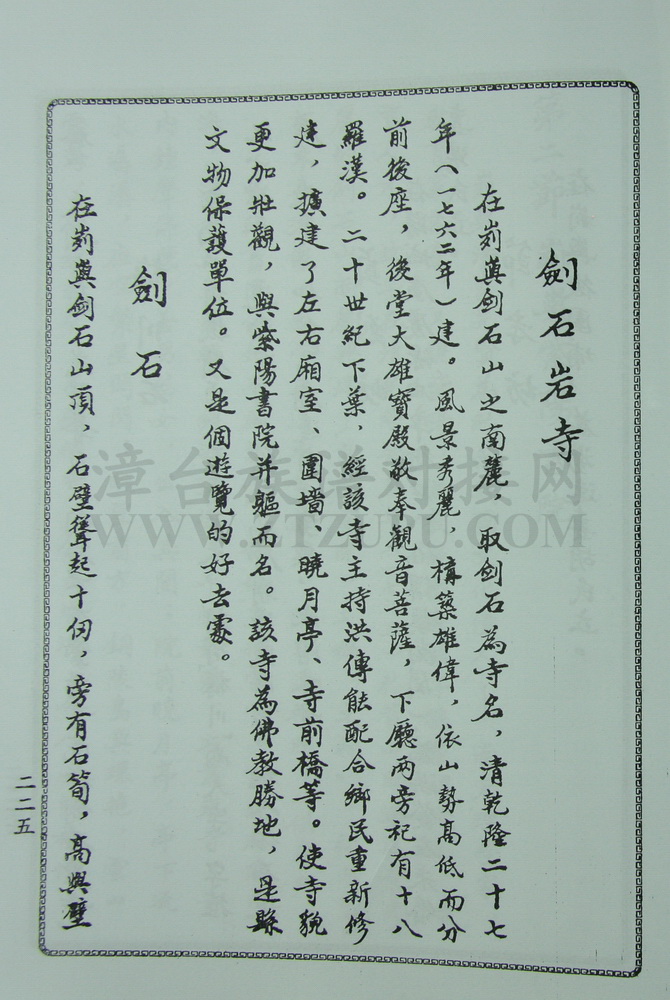 劍石岩寺
在剡萬劍石山之南麓，取劍石為寺名，清乾隆二十七
年（一七六二年）建。風景秀麗，構築雄偉，依山勢高低而分
前後座，後堂大雄寶殿敬奉觀音菩薩，下廳两旁祀有十八
羅漢。二十世紀下葉，經該寺主持洪傳能配合鄉民重新修
建，擴建了左右廂室、圍墻、曉月亭、寺前橋等。使寺貌
更加壯觀，與紫陽書院并軀而名。該寺為佛教勝地，是縣
文物保護單位。又是個遊覽的好去處。
劍石
在剡萬劍石山頂，石壁聳起十仞，旁有石筍，高與壁
二二五
漳台族谱对接网
WWW.ZTZUPU.COM